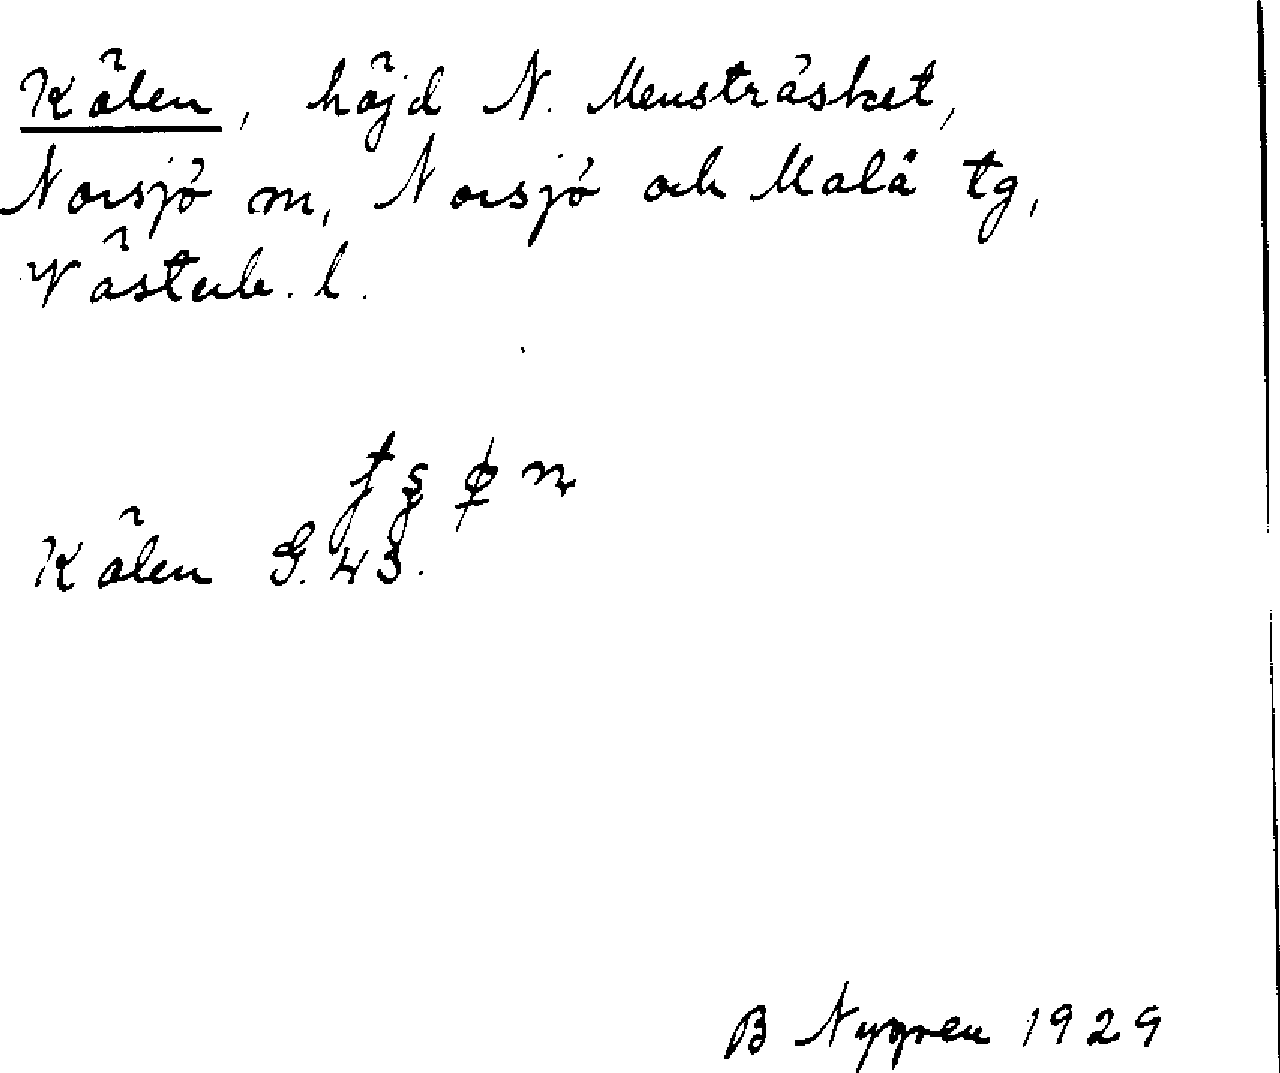 Kölen, höjd N. Mensträsket,
Norsjö m, Norsjö och Malå tg,
Västerb. l.
Kölen G. 43.
B Nygren 1929